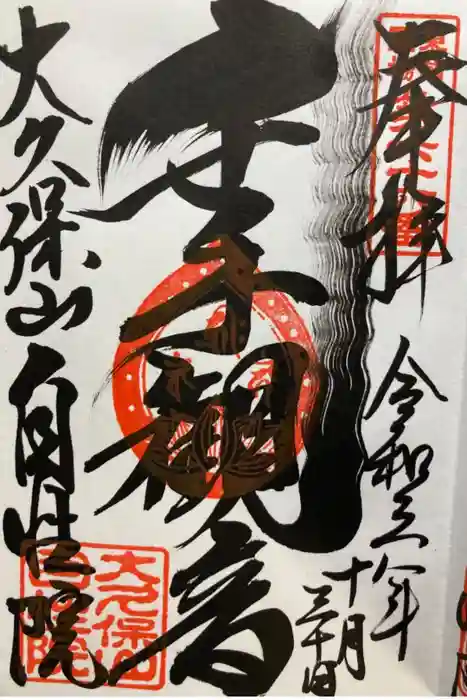 奉拝
令和六年
十月
三十日
観音
大久保山自性院
大久保山
自性院